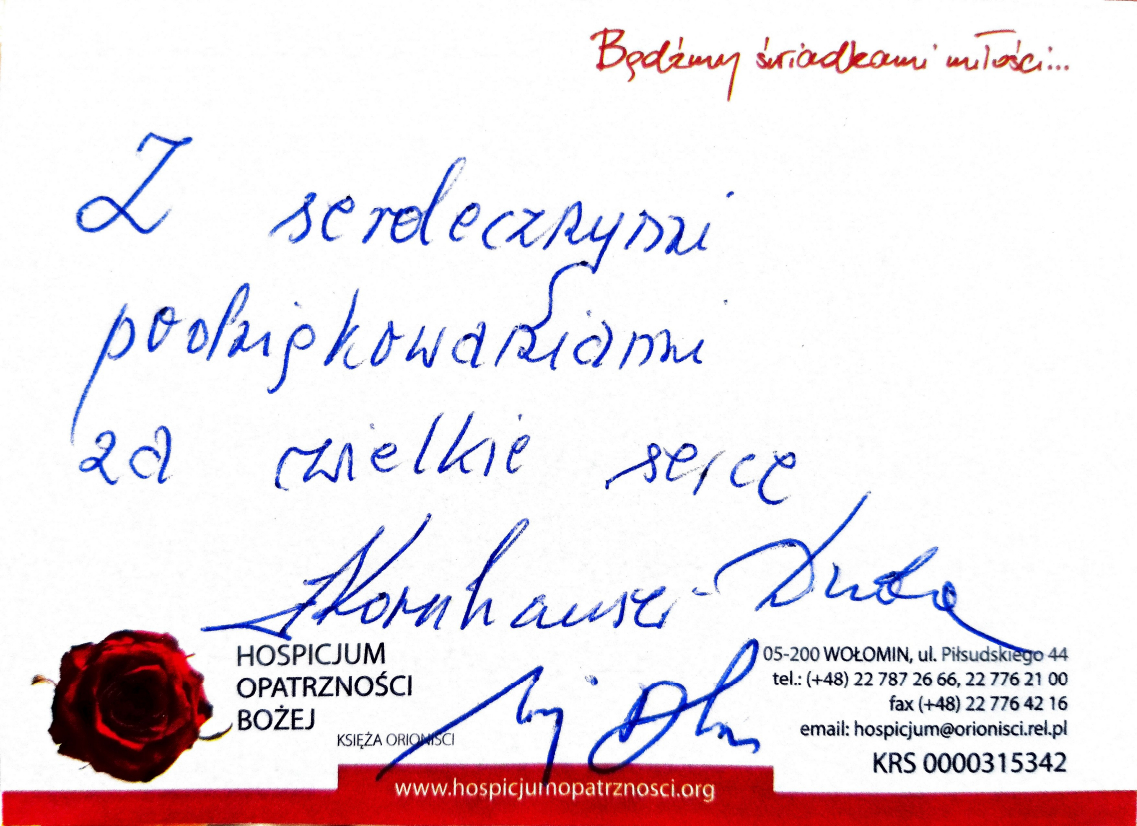 Będźmy świadkami miłości...
Z serdecznymi
podziękowaniami
za wielkie serce
AKornhauser-Duda
HOSPICJUM
OPATRZNOŚCI
BOŻEJ
KSIĘŻA ORIONIŚCI
05-200 WOŁOMIN, ul. Piłsudskiego 44
tel.: (+48) 22 787 26 66, 22 776 21 00
fax (+48) 22 776 42 16
email: hospicjum@orionisci.rel.pl
KRS 0000315342
www.hospicjumopatrznosci.org